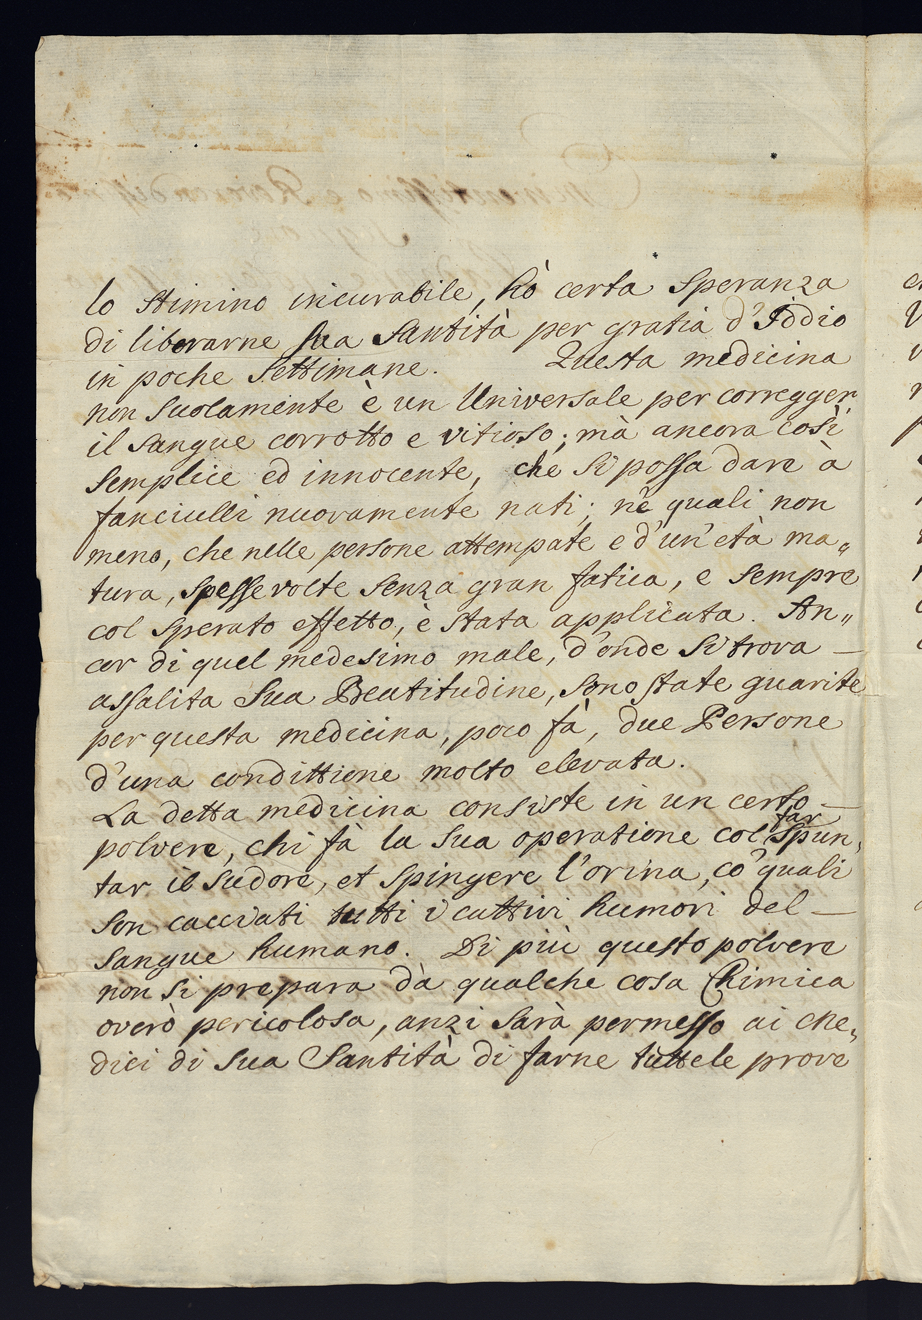 lo stimino incurabile, hò certa Speranza
di liberarne sua Santità per gratia d'Iddio
in poche Settimane. Questa medicina
non Suolamente è un Universale per corregger
il Sangue corrotto e vitioso; mà ancora così
semplice ed innocente, che si possa dare à
fanciulli nuovamente nati; nè quali non
meno, che nelle persone attempate e d'un'età ma„
tura, spesse volte senza gran fatica, e sempre
col sperato effetto, è stata applicata. An„
cor di quel medesimo male, d'onde si trova —
assalita Sua Beatitudine, sono state guarite
per questa medicina, poco fà, due Persone
d'una condittione molto elevata.
La detta medicina consiste in un certo —
polvere, chi fà la sua operatione col far Spun„
tar il Sudore, et spingere l'orina, co' quali
son cacciati tutti i cattivi humori del —
Sangue humano. Di più questo polvere
non si prepara dà qualche cosa Chimica
overò pericolosa, anzi sarà permesso ai Me„
dici di Sua Santità di farne tuttele prove